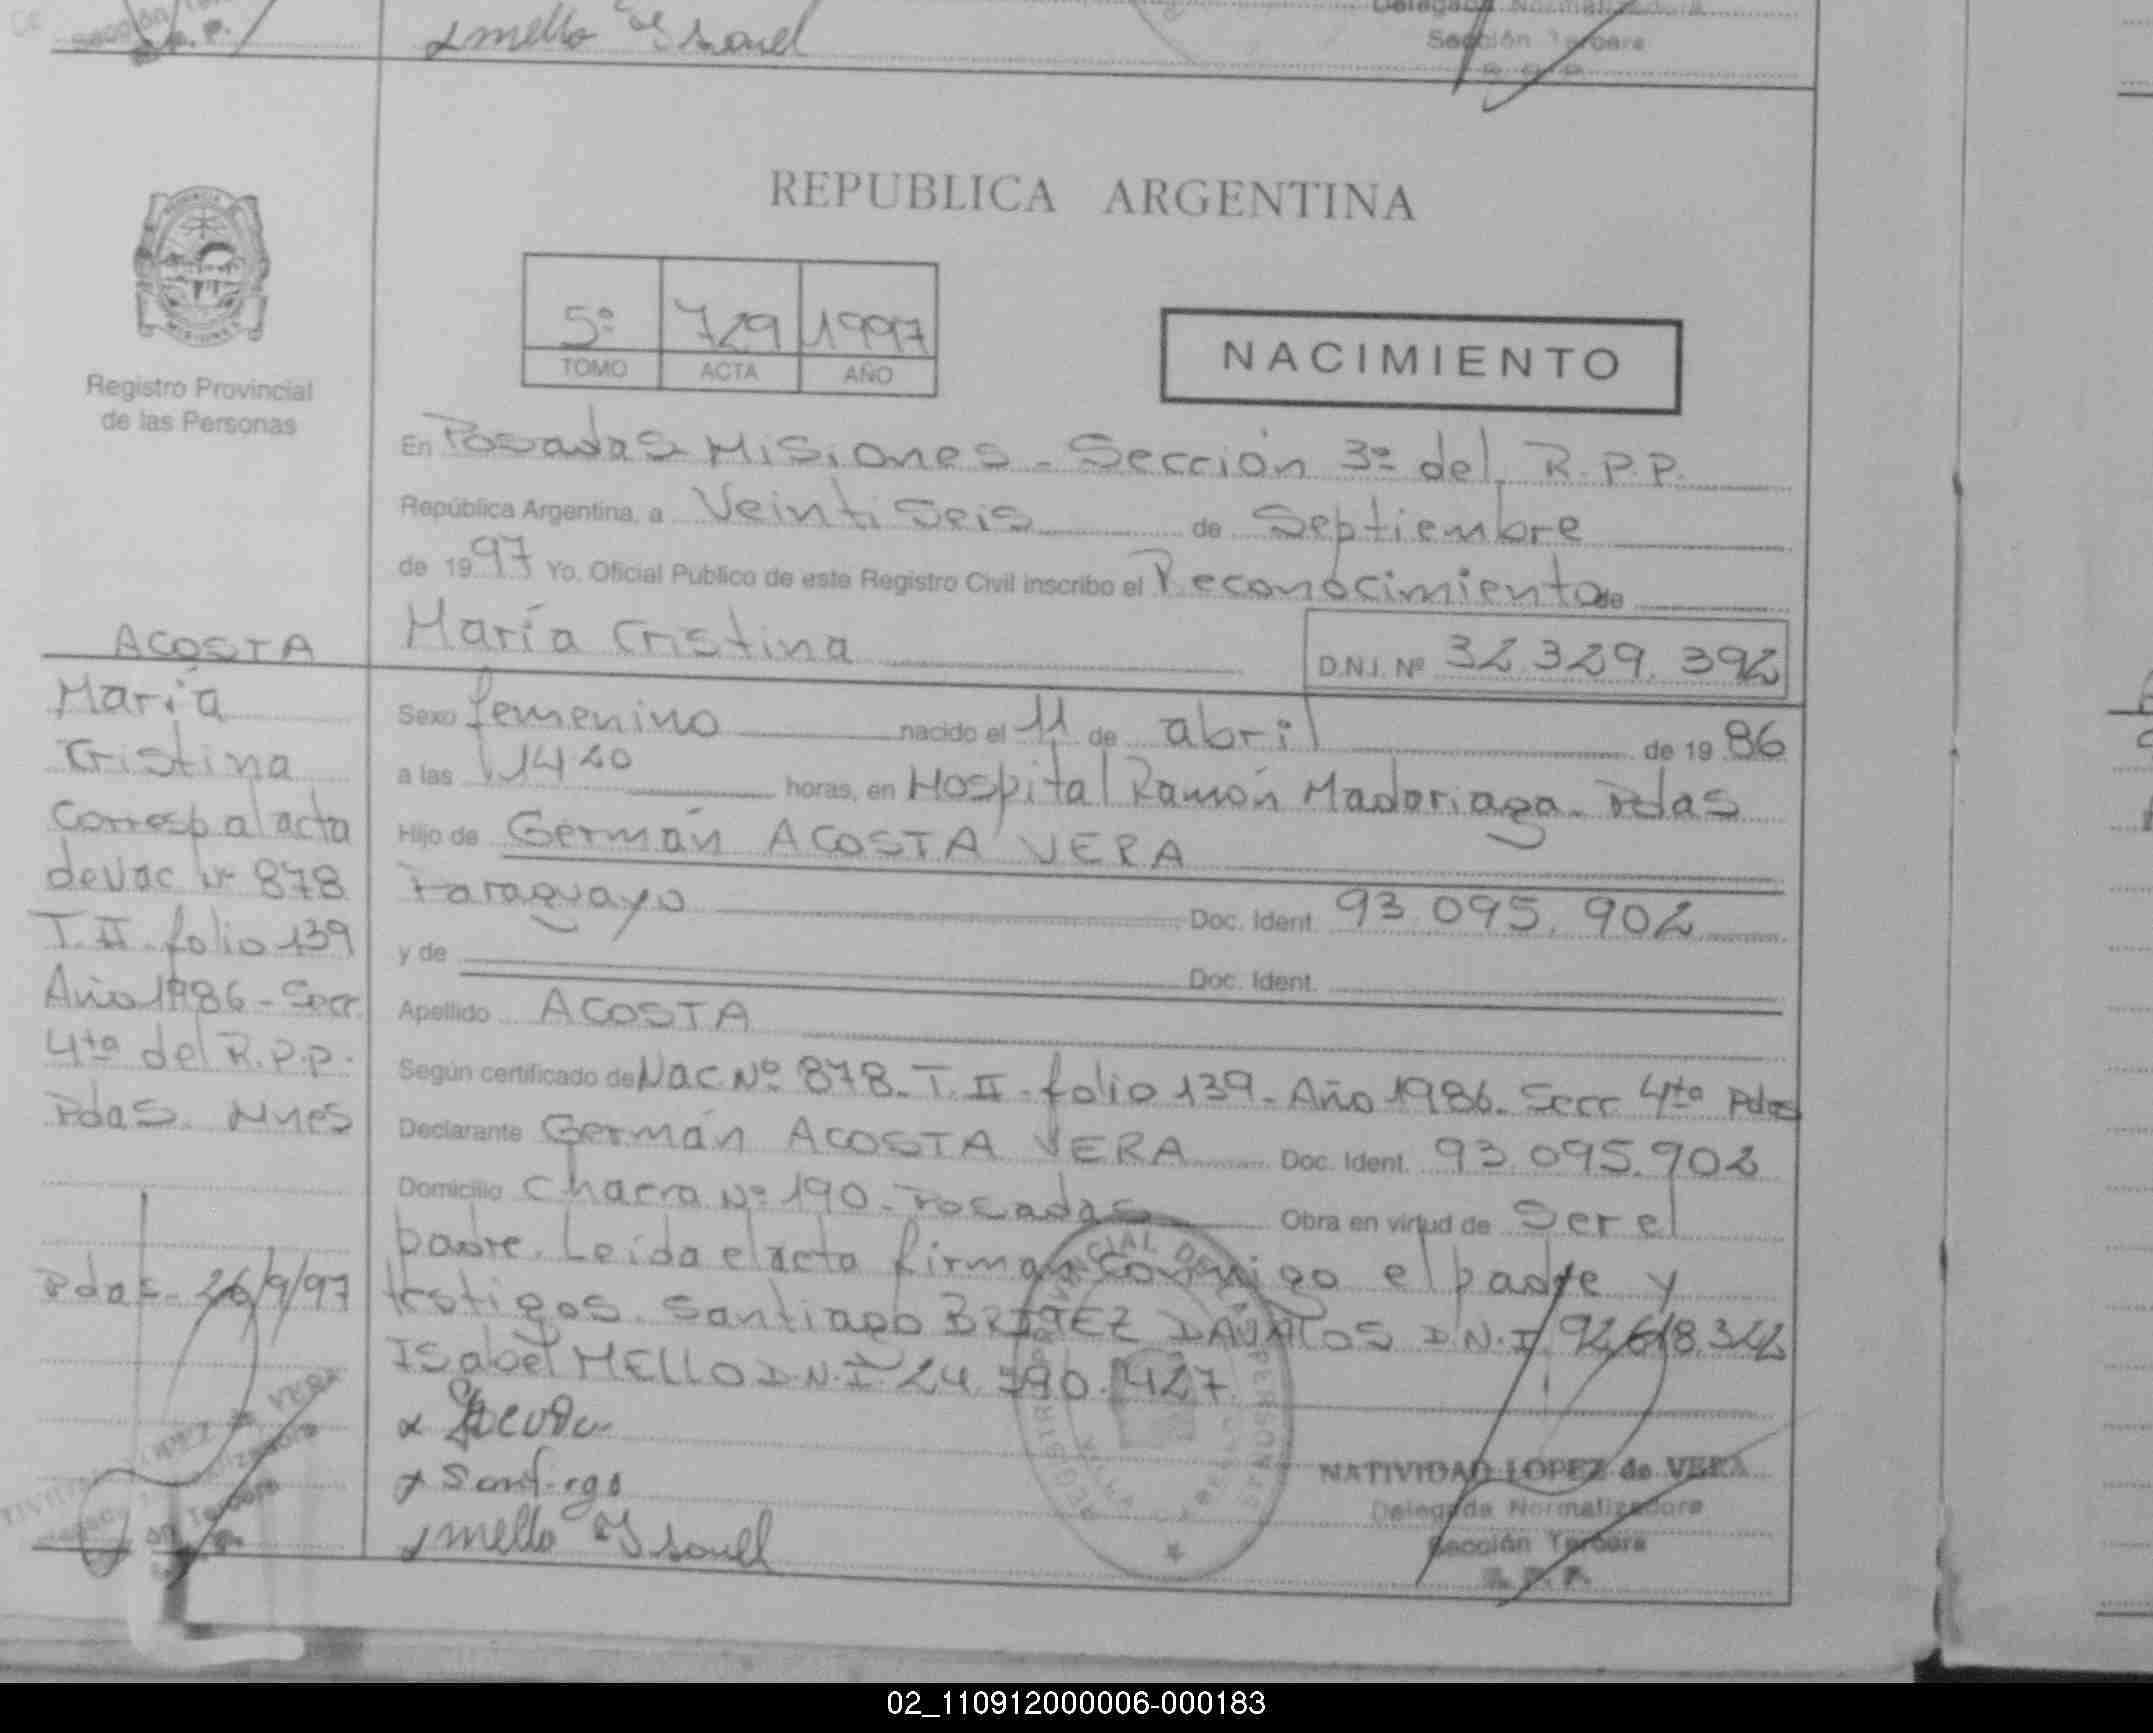 mello Ysavel
Delegada Normalizadora
Sección Tercera
REPUBLICA ARGENTINA
5º 729 1997
TOMO ACTA AÑO
NACIMIENTO
Registro Provincial
de las Personas
En Posadas Misiones - Sección 3ª del R.P.P.
República Argentina, a Veintiseis de Septiembre
de 1997 Yo. Oficial Público de este Registro Civil inscribo el Reconocimiento de
María Cristina D.N.I. Nº 32.329.392
Sexo femenino nacido el 11 de abril de 1986
a las 1420 horas, en Hospital Ramón Madariaga. Pdas
Hijo de Germán ACOSTA VERA
Paraguayo Doc. Ident. 93.095.902
y de Doc. Ident.
Apellido ACOSTA
Según certificado de Nac Nº 878. T. II - folio 139. Año 1986. Secc 4ta Pdas
Declarante Germán ACOSTA VERA Doc. Ident. 93.095.902
Domicilio Chacra Nº 190 - Posadas Obra en virtud de Ser el
padre. Leída el acta firman conmigo el padre y
testigos. Santiago BRITEZ DAVALOS D.N.I. 92.618.322
Isabel MELLO D.N.I 24.790.427
Santiago
mello Ysavel
NATIVIDAD LOPEZ de VERA
Delegada Normalizadora
Sección Tercera
R. P. P.
ACOSTA
María
Cristina
Corresp al acta
de Nac Nº 878
T. II - folio 139
Año 1986 - Secc
4ta del R.P.P.
Pdas. Mnes
Pdas. 26/9/97
02_110912000006-000183